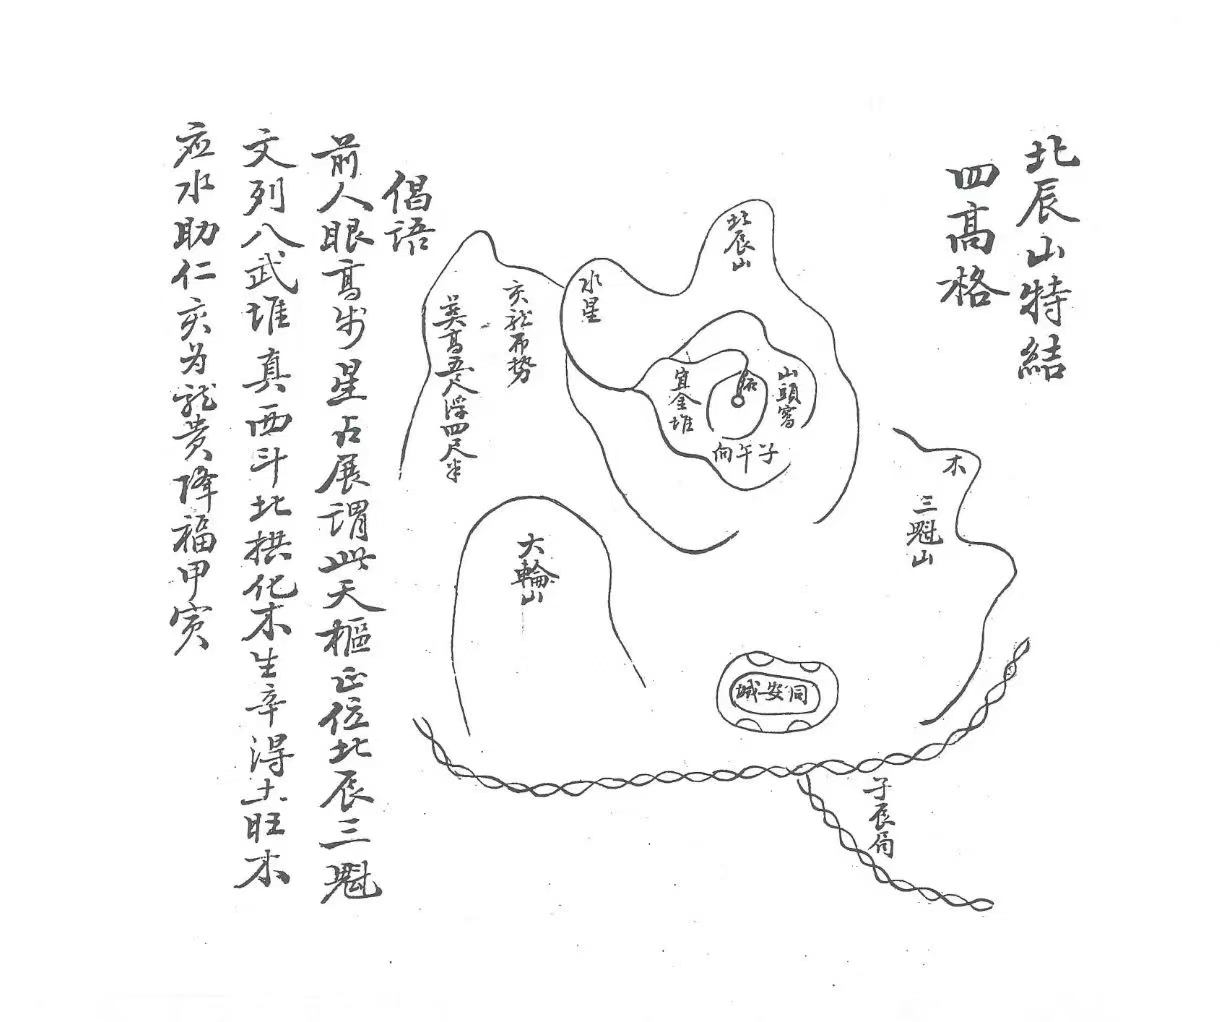 北辰山特結
四高格
北辰山
水星
亥龍布勢
英高五尺浮四尺半
山頭窩
宜金堆
向午子
木
三魁山
大輪山
城安同
子辰局
倡語
前人眼高步星占展謂此天樞正位北辰三魁
文列八武堆真西斗北拱化木生辛得土旺木
应水助仁亥为龍贵降福甲寅